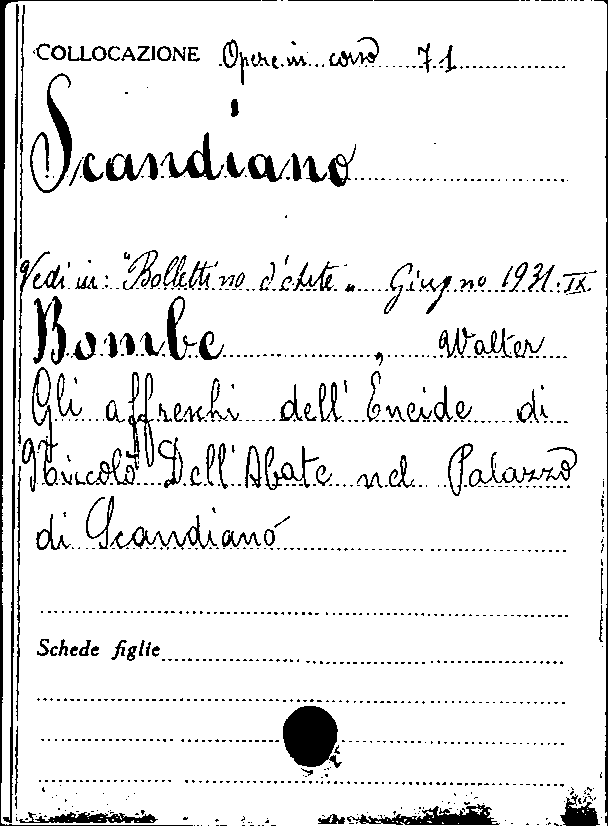 COLLOCAZIONE Opere in corso 71
Scandiano
Vedi in: "Bollettino d'Arte" Giugno 1931.IX.
Bombe, Walter
Gli affreschi dell'Eneide di
Niccolò Dell'Abate nel Palazzo
di Scandiano
Schede figlie